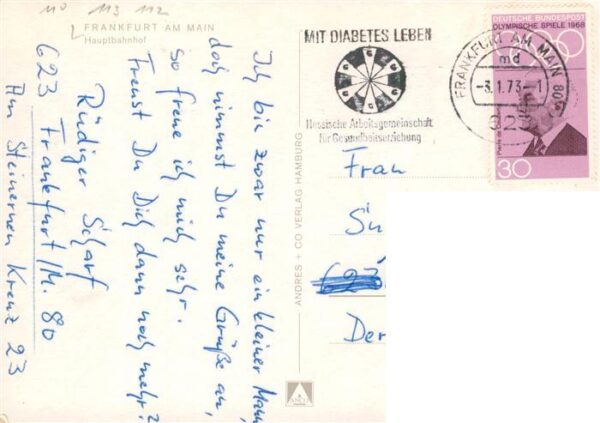 110 113 112
FRANKFURT AM MAIN
Hauptbahnhof
Ich bin zwar nur ein kleiner Mann,
doch nimmst Du meine Grüße an,
so freue ich mich sehr.
Freust Du Dich dann noch mehr?
Rüdiger Scharf
623 Frankfurt/M. 80
Am Steinernen Kreuz 23
ANDRES + CO VERLAG HAMBURG
MIT DIABETES LEBEN
Hessische Arbeitsgemeinschaft
für Gesundheitserziehung
FRANKFURT AM MAIN 80
md
-3.1.73-1
623
DEUTSCHE BUNDESPOST
OLYMPISCHE SPIELE 1968
30
Frau
Su
Der